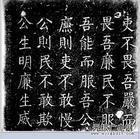 吏不畏吾嚴而
畏吾廉民不服
吾能而服吾公
廉則吏不敢欺
公則民不敢慢
公生明廉生威